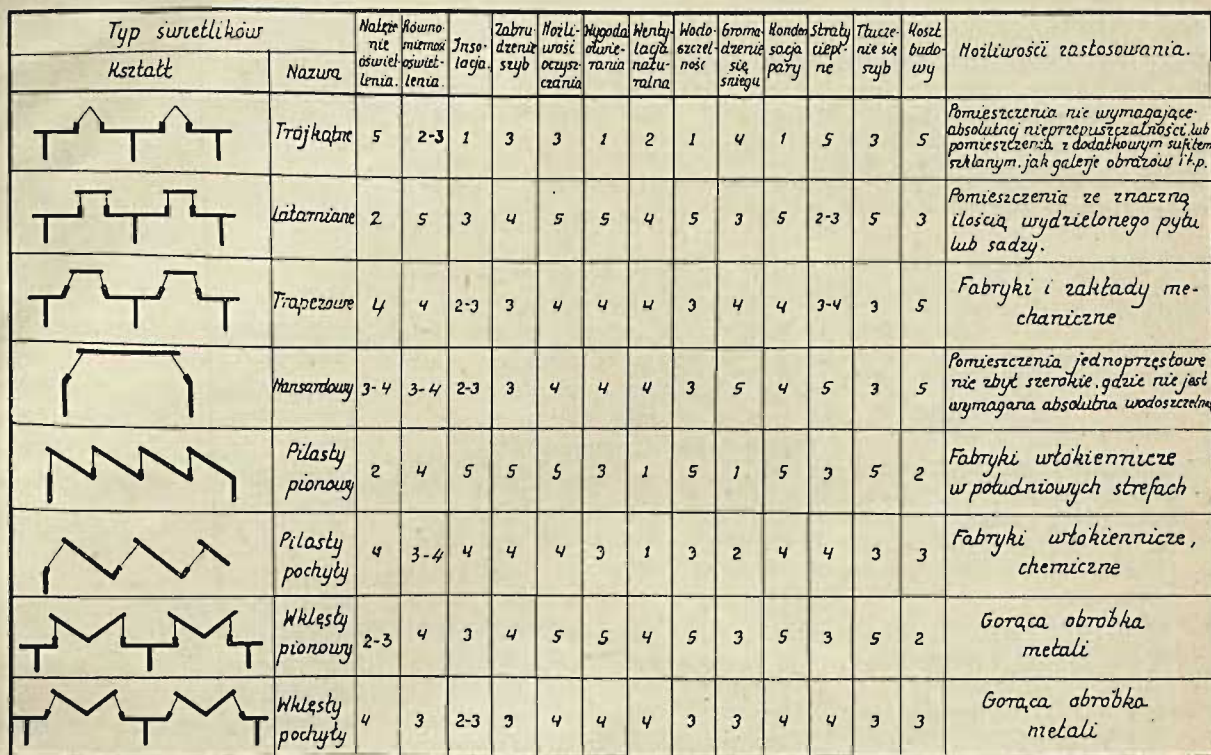 Typ świetlików
Kształt
Nazwa
Natęże-
nie
oświet-
lenia.
Równo-
mierność
oświet-
lenia.
Inso-
lacja.
Zabru-
dzenie
szyb
Możli-
wość
oczysz-
czania
Wygoda
otwie-
rania
Wenty-
lacja
natu-
ralna
Wodo-
szczel-
ność
Groma-
dzenie
się
śniegu
Konden-
sacja
pary
Straty
ciepl-
ne
Tłucze-
nie się
szyb
Koszt
budo-
wy
Możliwości zastosowania.
Trójkątne 5 2-3 1 3 3 1 2 1 4 1 5 3 5
Pomieszczenia nie wymagające
absolutnej nieprzepuszczalności, lub
pomieszczenia z dodatkowym sufitem
szklanym, jak galerje obrazów i t.p.
Latarniane 2 5 3 4 5 5 4 5 3 5 2-3 5 3
Pomieszczenia ze znaczną
ilością wydzielonego pyłu
lub sadzy.
Trapezowe 4 4 2-3 3 4 4 4 3 4 4 3-4 3 5
Fabryki i zakłady me-
chaniczne
Mansardowy 3-4 3-4 2-3 3 4 4 4 3 5 4 5 3 5
Pomieszczenia jednoprzęsłowe
nie zbyt szerokie, gdzie nie jest
wymagana absolutna
Pilasty
pionowy 2 4 5 5 5 3 1 5 1 5 3 5 2
Fabryki włókiennicze
w południowych strefach
Pilasty
pochyły 4 3-4 4 4 4 3 1 3 2 4 4 3 3
Fabryki włókiennicze,
chemiczne
Wklęsły
pionowy 2-3 4 3 4 5 5 4 5 3 5 3 5 2
Gorąca obróbka
metali
Wklęsły
pochyły 4 3 2-3 3 4 4 4 3 3 4 4 3 3
Gorąca obróbka
metali